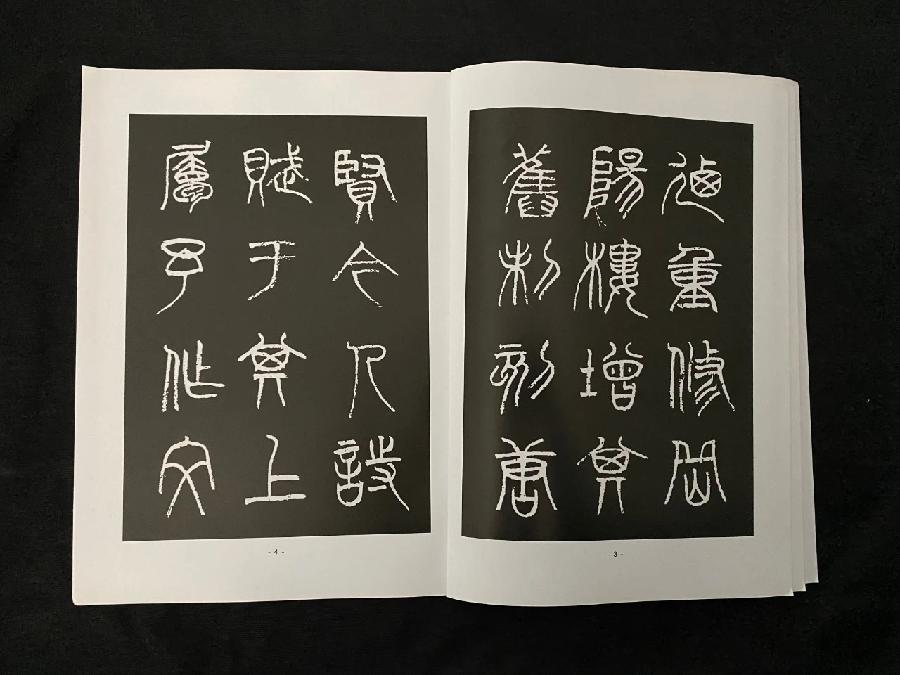 迺重修岳
陽樓增其
舊制刻唐
3 -
賢今人詩
賦于其上
屬予作文
- 4 -